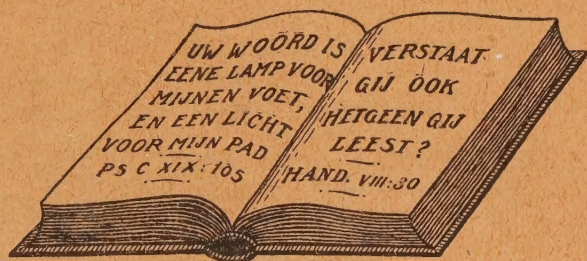 UW WOÖRD IS
EENE LAMP VOOR
MIJNEN VOET,
EN EEN LICHT
VOOR MIJN PAD
PS C XIX:105
VERSTAAT
GIJ ÖOK
HETGEEN GIJ
LEEST?
HAND. VIII:30